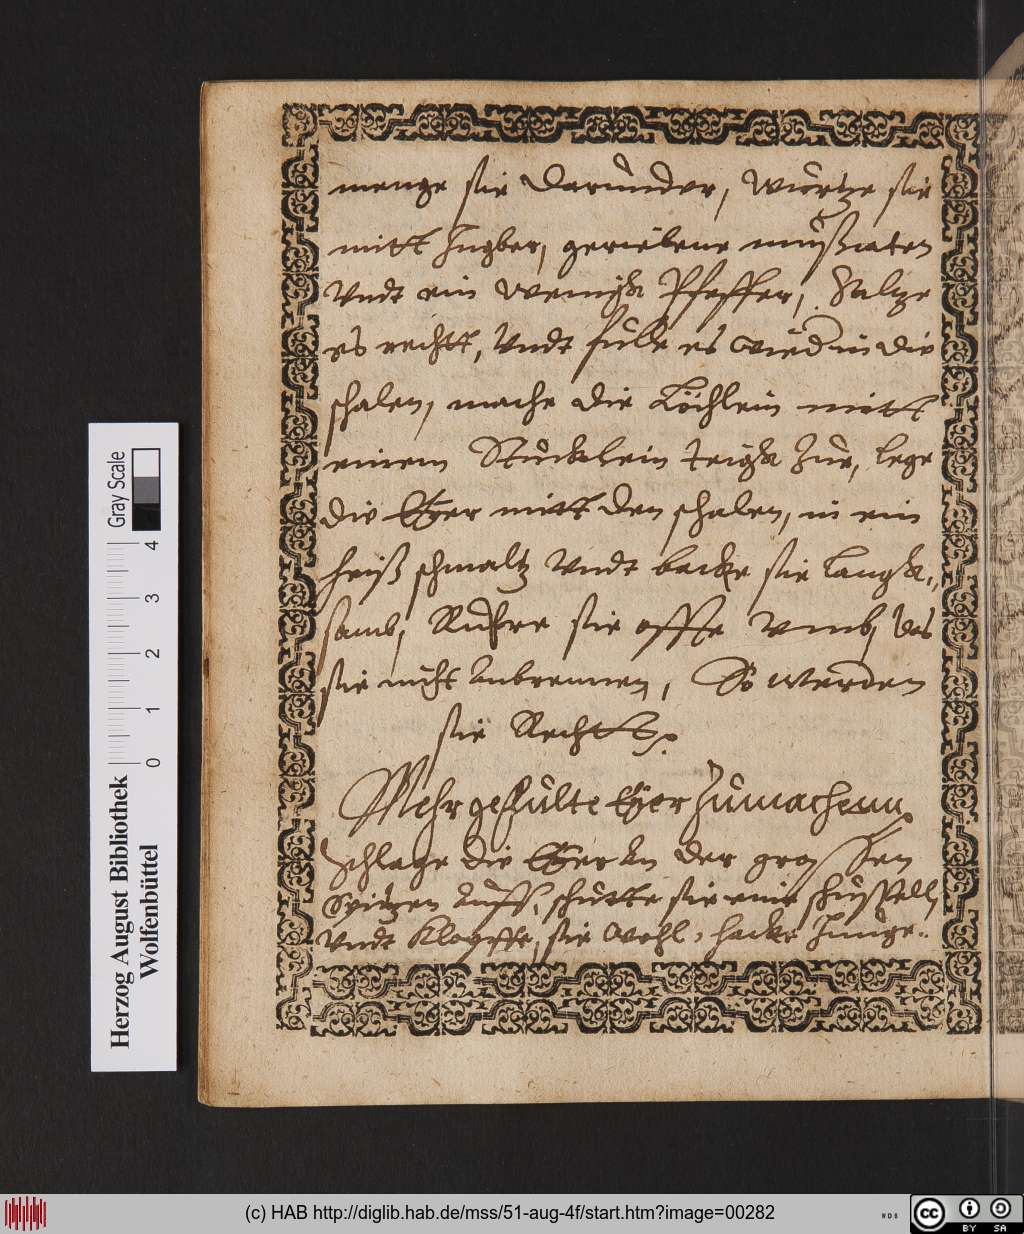 menge sie darunder, würtze sie
mitt Ingber, geriebene mußcaten
Vndt ein wenigk Pfeffer, Saltze
es rechtt, Vndt fulle es wied in die
schalen, mache die Löchlein mitt
einem Stucklein teigk Zue, lege
die Eÿer mitt den schalen, in ein
heiß schmaltz Vndt backe sie langk„
samb, Ruhre sie offte vmb, das
sie nicht anbrennen, So werden
sie Rechtt
Mehr gefulte Eÿer Zumachenn
Schlage die Eÿer an der grossen
Spitzen auff, schutte sie eine schussell,
Vndt Klopffe, sie wohl, hacke Zunge„
Gray Scale
0 1 2 3 4
Herzog August Bibliothek
Wolfenbüttel
(c) HAB http://diglib.hab.de/mss/51-aug-4f/start.htm?image=00282
WDB
cc BY SA